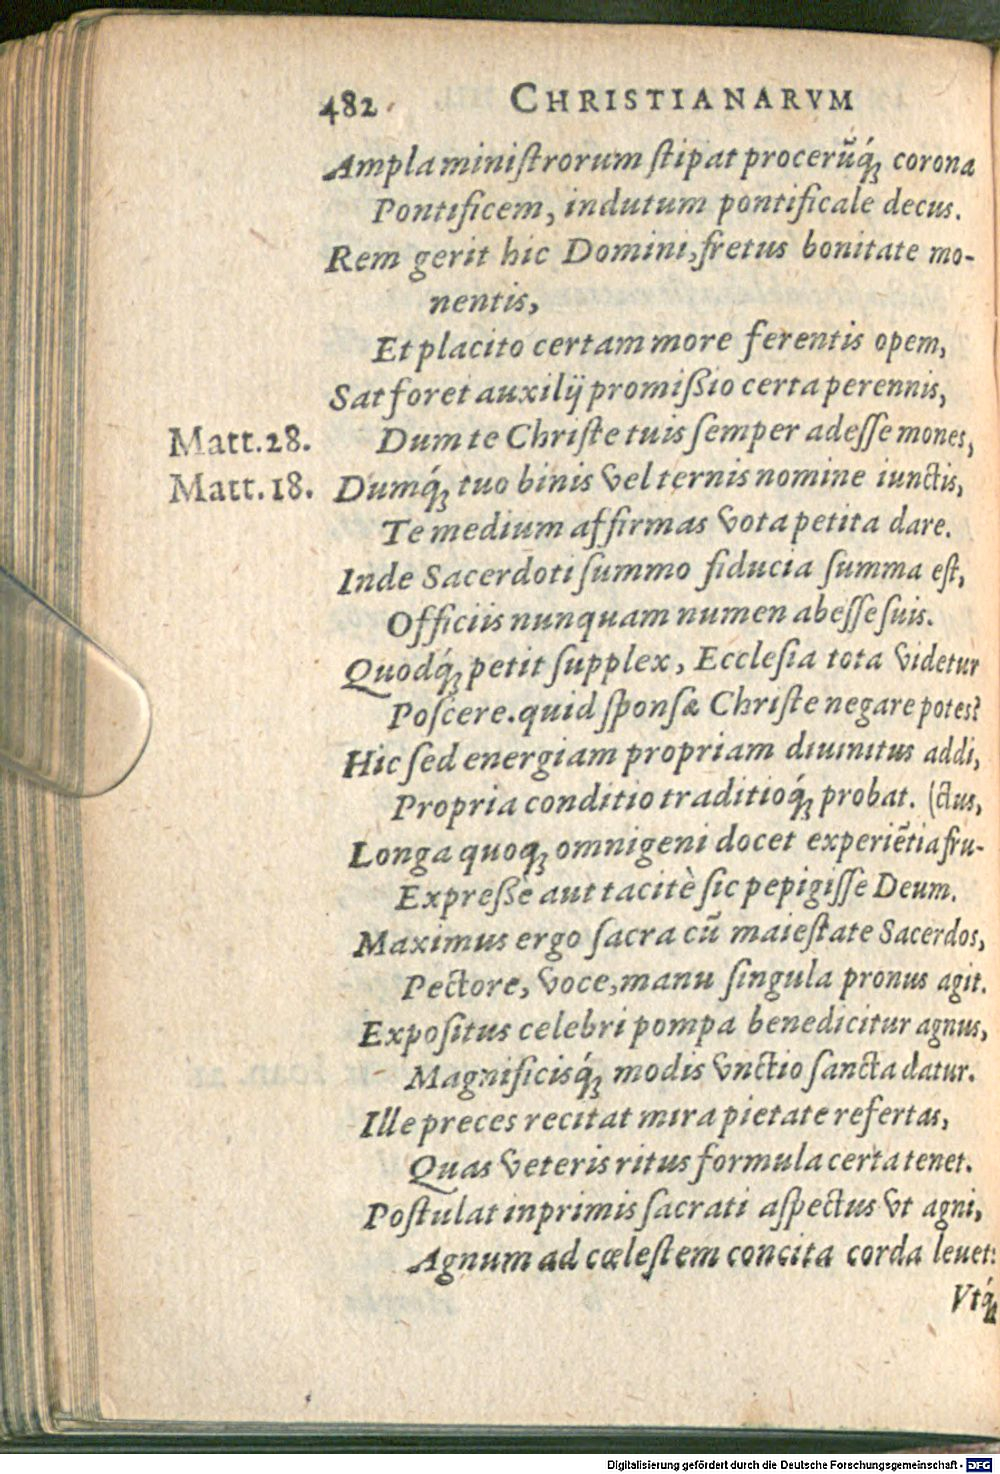 482 CHRISTIANARVM
Ampla miniſtrorum ſtipat procerũq́ꝫ corona
Pontificem, indutum pontificale decus.
Rem gerit hic Domini, fretus bonitate mo-
nentis,
Et placito certam more ferentis opem,
Sat foret auxilij promiſsio certa perennis,
Matt.28. Dum te Chriſte tuis ſemper adeſſe mones,
Matt.18. Dumq́ꝫ tuo binis vel ternis nomine iunctis,
Te medium affirmas vota petita dare.
Inde Sacerdoti ſummo fiducia ſumma eſt,
Officiis nunquam numen abeſſe ſuis.
Quodq́ꝫ petit ſupplex, Eccleſia tota videtur
Poſcere. quid ſponſæ Chriſte negare potes?
Hic ſed energiam propriam diuinitus addi,
Propria conditio traditioq́ꝫ probat. (ctus,
Longa quoqꝫ omnigeni docet experiẽtia fru-
Expreſsè aut tacitè ſic pepigiſſe Deum.
Maximus ergo ſacra cũ maieſtate Sacerdos,
Pectore, voce, manu ſingula pronus agit.
Expoſitus celebri pompa benedicitur agnus,
Magnificisq́ꝫ modis vnctio ſancta datur.
Ille preces recitat mira pietate refertas,
Quas veteris ritus formula certa tenet.
Poſtulat inprimis ſacrati aſpectus vt agni,
Agnum ad cœleſtem concita corda leuet:
Vtq́ꝫ
Digitalisierung gefördert durch die Deutsche Forschungsgemeinschaft - DFG